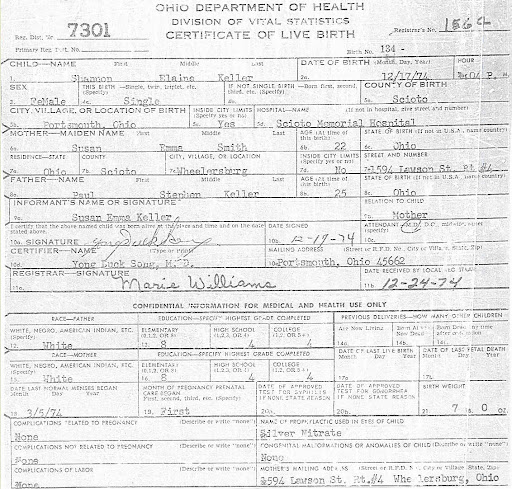 OHIO DEPARTMENT OF HEALTH
DIVISION OF VITAL STATISTICS
CERTIFICATE OF LIVE BIRTH
Reg. Dist. No. 7301
Registrar's No. 1564
Primary Reg. Dist. No.
Birth No. 134 -
CHILD—NAME First Middle Last DATE OF BIRTH (Month, Day, Year) HOUR
1. Shannon Elaine Keller 2a. 12/17/74 P. M.
SEX THIS BIRTH—Single, twin, triplet, etc. (Specify) IF NOT SINGLE BIRTH—Born first, second, third, etc. (Specify) COUNTY OF BIRTH
3. FeMale 4a. Single 4b. 5a. Scioto
CITY, VILLAGE, OR LOCATION OF BIRTH INSIDE CITY LIMITS (Specify yes or no) HOSPITAL—NAME (If not in hospital, give street and number)
5b. Portsmouth, Ohio 5c. Yes 5d. Scioto Memorial Hospital
MOTHER—MAIDEN NAME First Middle Last AGE (At time of this birth) STATE OF BIRTH (If not in U.S.A., name country)
6a. Susan Emma Smith 6b. 22 6c. Ohio
RESIDENCE—STATE COUNTY CITY, VILLAGE, OR LOCATION INSIDE CITY LIMITS (Specify yes or no) STREET AND NUMBER
7a. Ohio 7b. Scioto 7c. Wheelersburg 7d. No 7e. 1594 Lawson St. Rt. #4
FATHER—NAME First Middle Last AGE (At time of this birth) STATE OF BIRTH (If not in U.S.A., name country)
8a. Paul Stephen Keller 8b. 25 8c. Ohio
INFORMANT'S NAME OR SIGNATURE RELATION TO CHILD
9a. Susan Emma Keller 9b. Mother
I certify that the above named child was born alive at the place and time and on the date stated above. DATE SIGNED ATTENDANT (M.D., D.O., midwife, other) (Specify)
10a. SIGNATURE 10b. 12-17-74 10c.
CERTIFIER—NAME (Type or Print) MAILING ADDRESS (Street or R.F.D. No., City or Village, State, Zip)
10d. Yong Duck Song, M.D. 10e. Portsmouth, Ohio 45662
REGISTRAR—SIGNATURE DATE RECEIVED BY LOCAL REGISTRAR
11a. Marie Williams 11b. 12-24-74
CONFIDENTIAL INFORMATION FOR MEDICAL AND HEALTH USE ONLY
RACE—FATHER EDUCATION—SPECIFY HIGHEST GRADE COMPLETED PREVIOUS DELIVERIES—HOW MANY OTHER CHILDREN
WHITE, NEGRO, AMERICAN INDIAN, ETC. (Specify) ELEMENTARY (0,1,2, OR 8) HIGH SCHOOL (1,2,3, OR 4) COLLEGE (1,2,3, OR 5+) Are Now Living
12. White 13. 8 4 4 14a. 14b. 14c.
RACE—MOTHER EDUCATION—SPECIFY HIGHEST GRADE COMPLETED DATE OF LAST LIVE BIRTH Month Day Year DATE OF LAST FETAL DEATH Month Day Year
WHITE, NEGRO, AMERICAN INDIAN, ETC. (Specify) ELEMENTARY HIGH SCHOOL COLLEGE
15. White 16. 8 4 4 17a. 17b.
DATE LAST NORMAL MENSES BEGAN Month Day Year MONTH OF PREGNANCY PRENATAL CARE BEGAN First, second, third, etc. (Specify) DATE OF APPROVED TEST FOR SYPHILIS IF NONE STATE REASON DATE OF APPROVED TEST FOR GONORRHEA IF NONE STATE REASON BIRTH WEIGHT
18. 3/5/74 19. First 20a. 20b. 21. 7 lb. 0 oz.
COMPLICATIONS RELATED TO PREGNANCY (Describe or write "none") NAME OF PROPHYLACTIC USED IN EYES OF CHILD
None Silver Nitrate
COMPLICATIONS NOT RELATED TO PREGNANCY (Describe or write "none") CONGENITAL MALFORMATIONS OR ANOMALIES OF CHILD (Describe or write "none")
None None
COMPLICATIONS OF LABOR (Describe or write "none") MOTHER'S MAILING ADDRESS (Street or R.F.D. No., City or Village, State, Zip)
None 1594 Lawson St. Rt.#4 Wheelersburg, Ohio